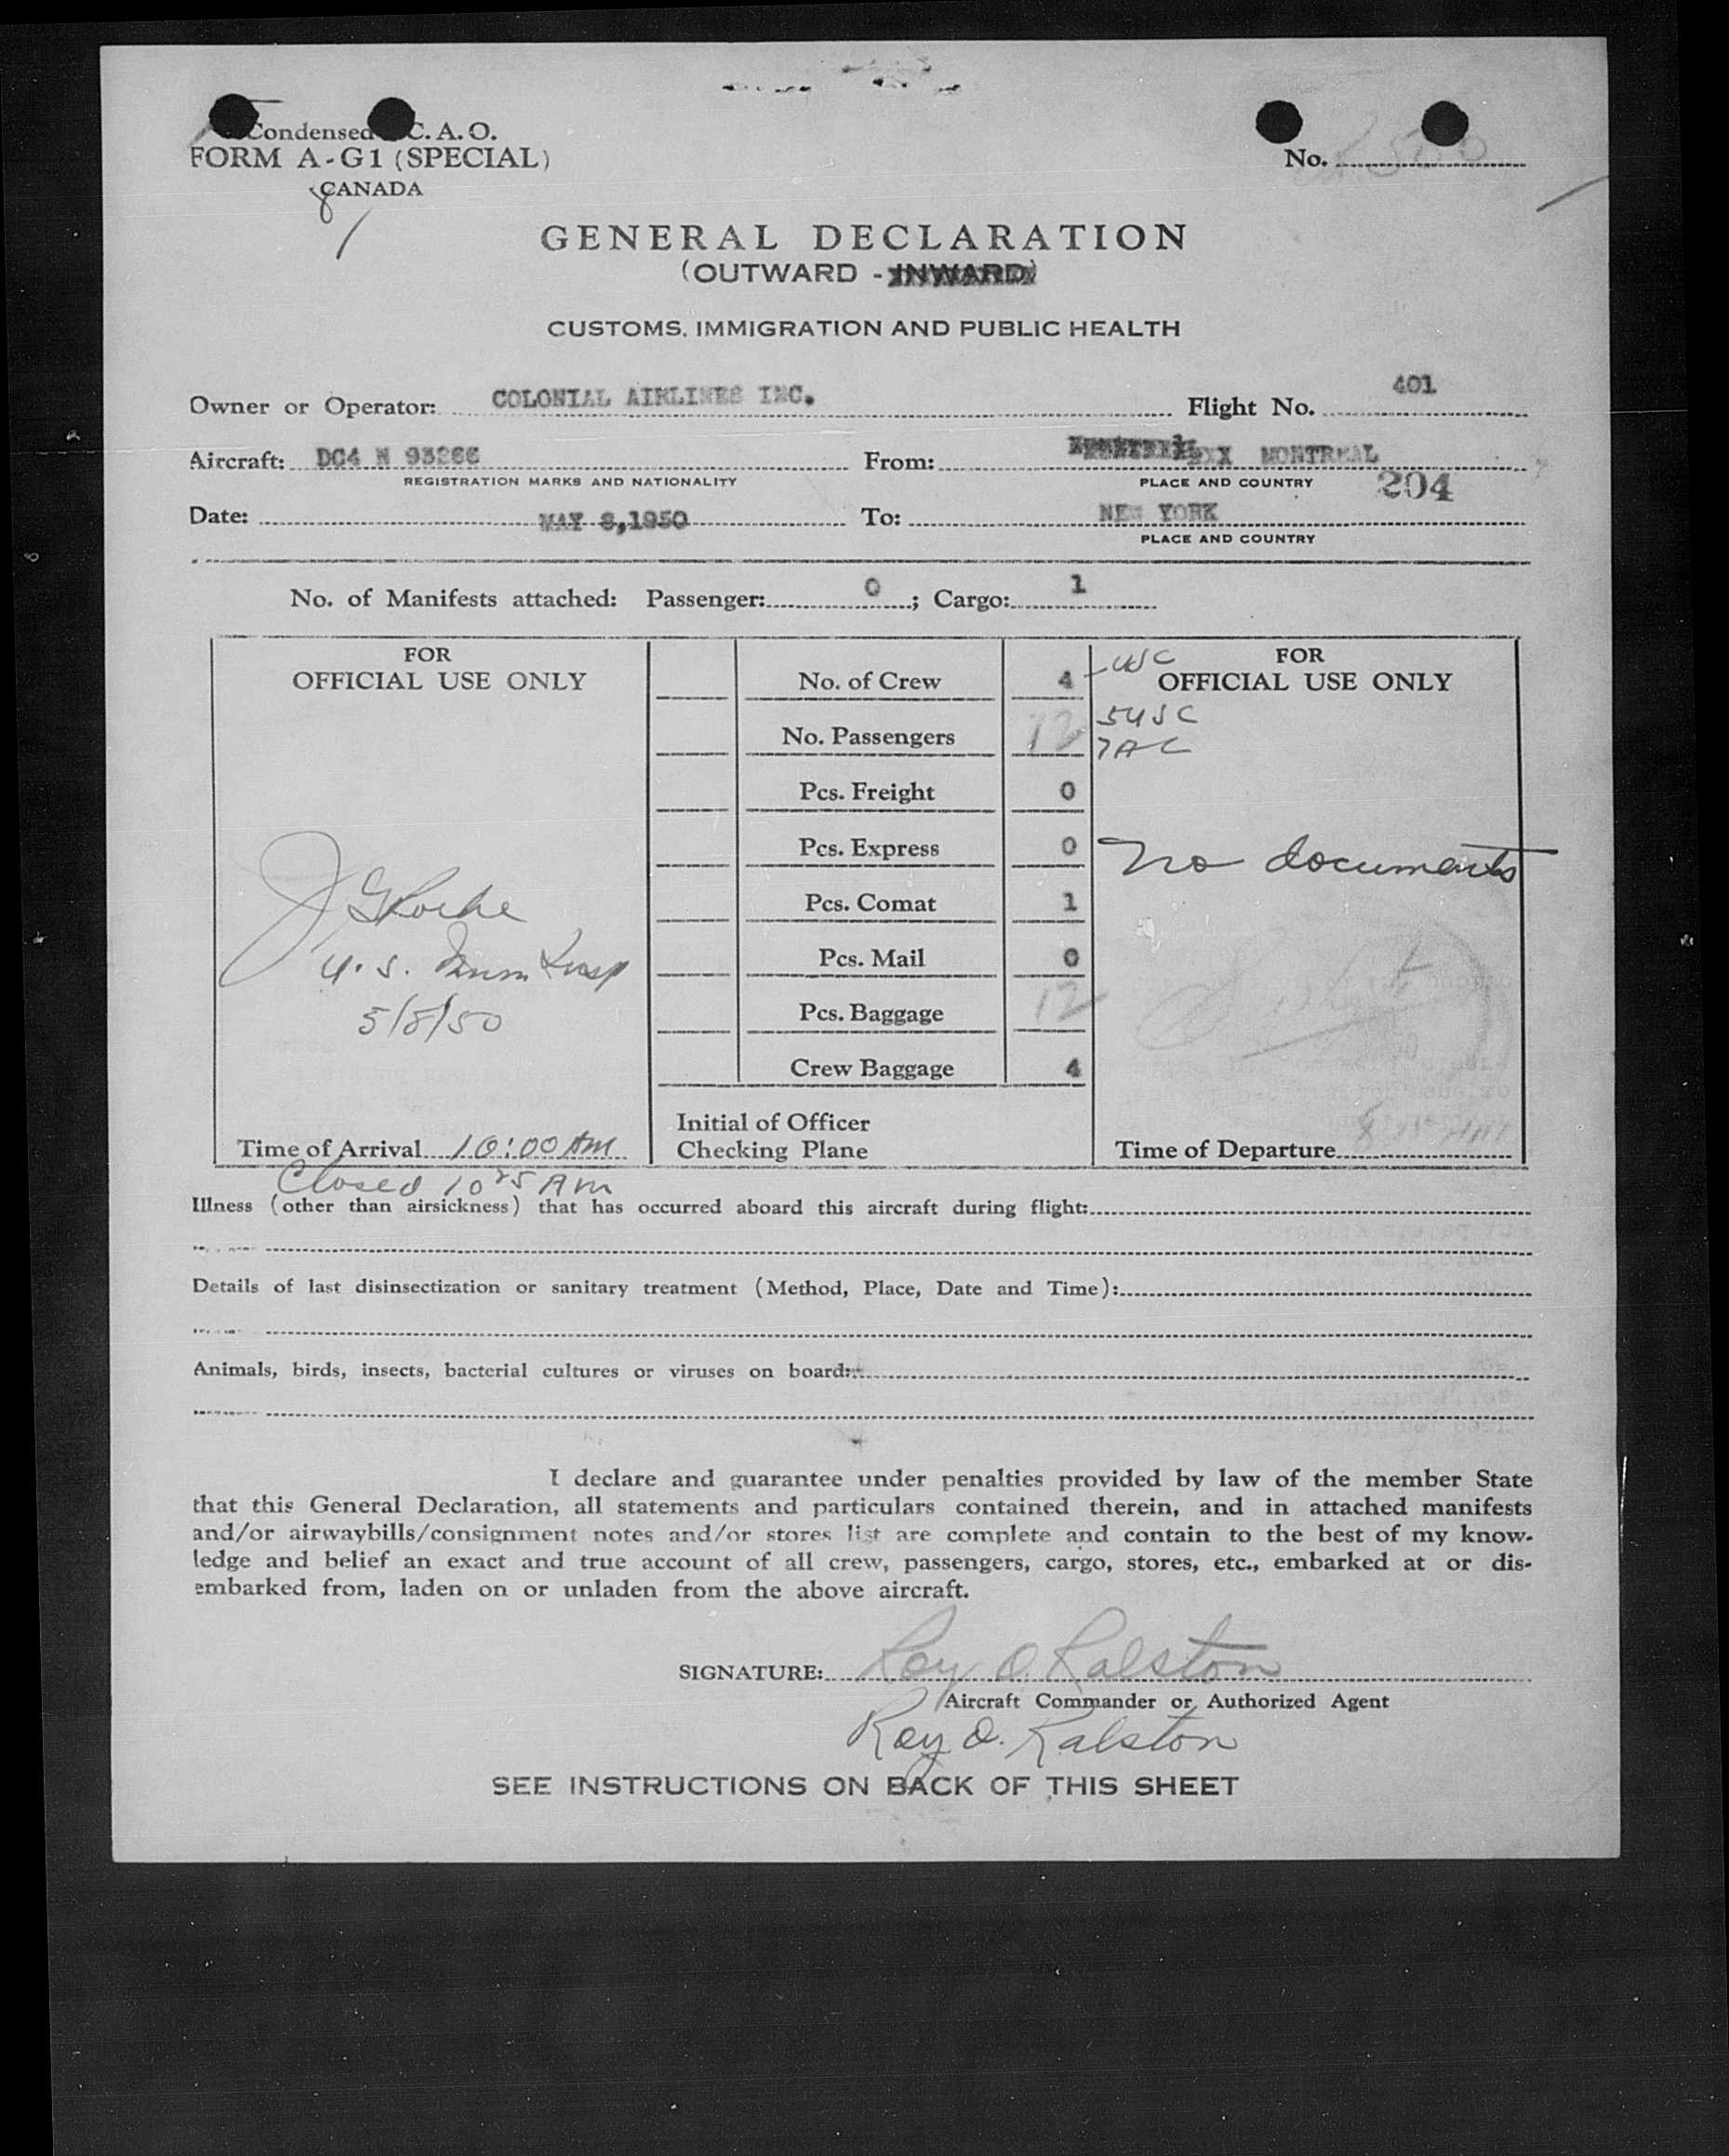 Condensed C. A. O.
FORM A-G1 (SPECIAL)
CANADA
No.
GENERAL DECLARATION
(OUTWARD - INWARD)
CUSTOMS, IMMIGRATION AND PUBLIC HEALTH
Owner or Operator: COLONIAL AIRLINES INC. Flight No. 401
Aircraft: DC4 N 93266 From: MONTREAL
REGISTRATION MARKS AND NATIONALITY PLACE AND COUNTRY 204
Date: MAY 8,1950 To: NEW YORK
PLACE AND COUNTRY
No. of Manifests attached: Passenger: 0 ; Cargo: 1
FOR
OFFICIAL USE ONLY
J G Roche
U.S. Imm Insp
5/8/50
Time of Arrival 10:00 AM
Closed 10 25 AM
No. of Crew 4
No. Passengers 12
Pcs. Freight 0
Pcs. Express 0
Pcs. Comat 1
Pcs. Mail 0
Pcs. Baggage 12
Crew Baggage 4
Initial of Officer
Checking Plane
FOR
OFFICIAL USE ONLY
- USC
5 USC
7 AC
No documents
Time of Departure
Illness (other than airsickness) that has occurred aboard this aircraft during flight:
Details of last disinsectization or sanitary treatment (Method, Place, Date and Time):
Animals, birds, insects, bacterial cultures or viruses on board:
I declare and guarantee under penalties provided by law of the member State
that this General Declaration, all statements and particulars contained therein, and in attached manifests
and/or airwaybills/consignment notes and/or stores list are complete and contain to the best of my know-
ledge and belief an exact and true account of all crew, passengers, cargo, stores, etc., embarked at or dis-
embarked from, laden on or unladen from the above aircraft.
SIGNATURE: Roy O. Ralston
Aircraft Commander or Authorized Agent
Roy O. Ralston
SEE INSTRUCTIONS ON BACK OF THIS SHEET